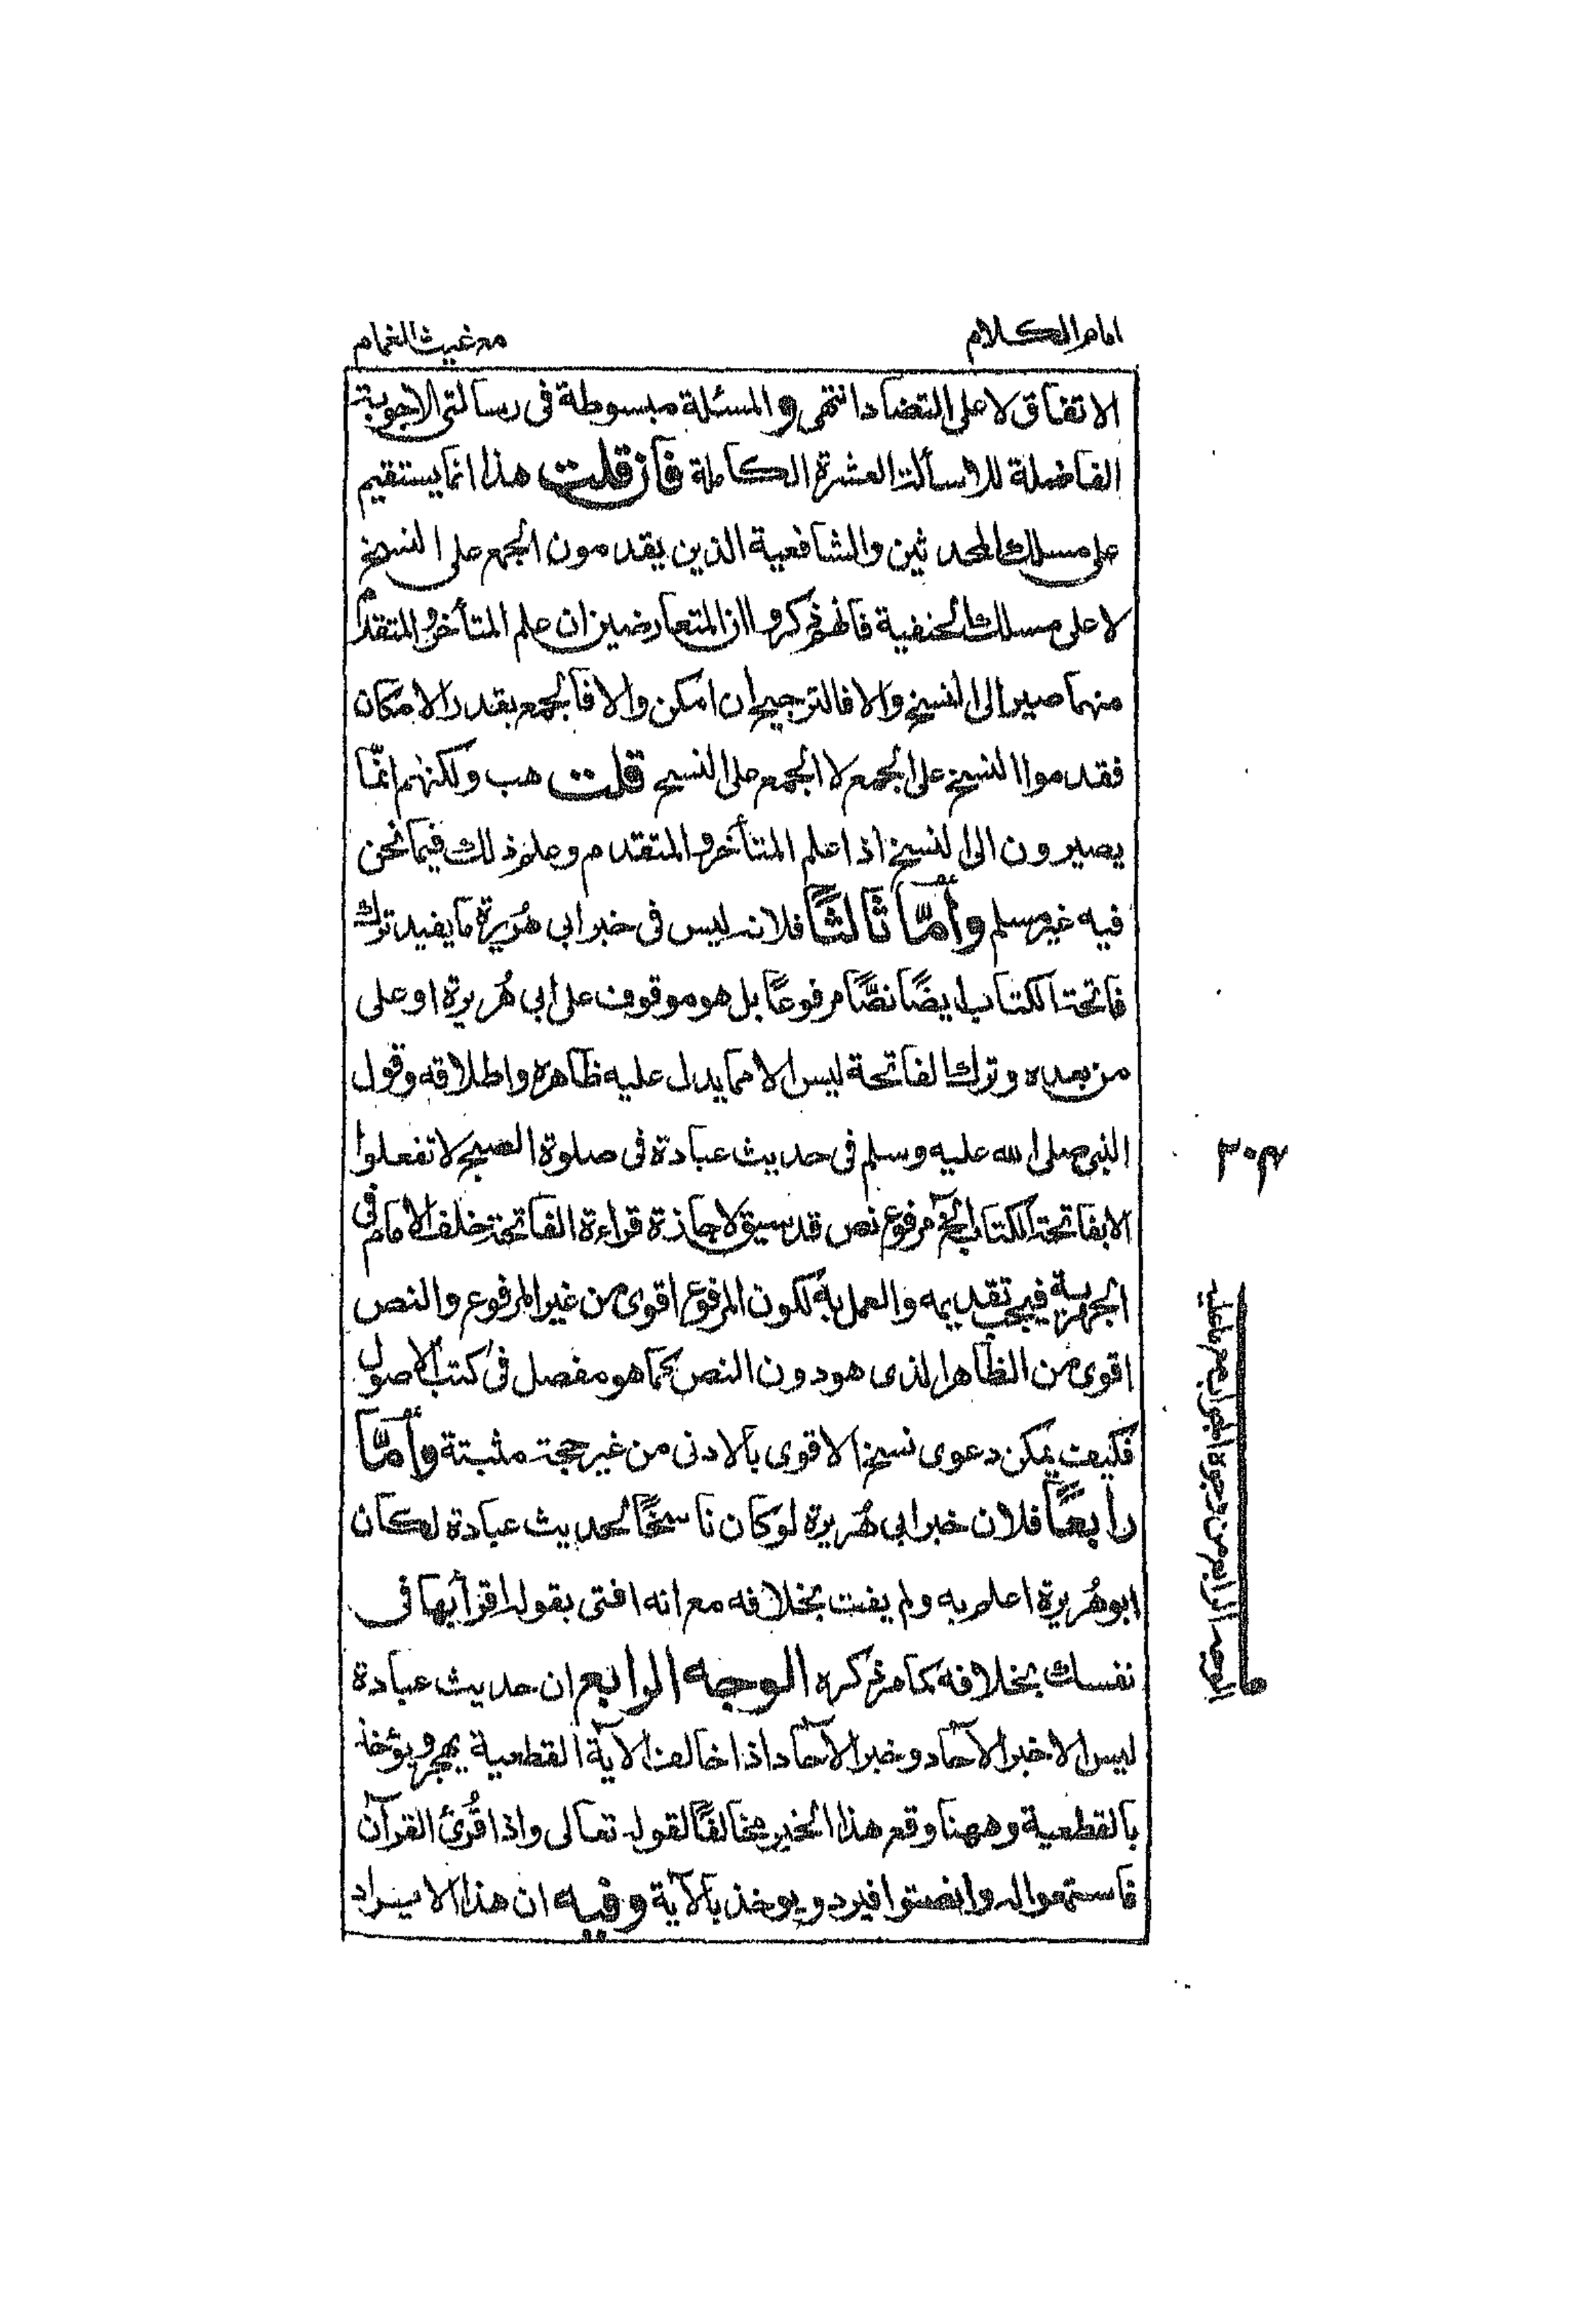 امام الكلام
مع غيث الغمام
الاتفاق لا على التضاد انتهى والمسئلة مبسوطة فى رسالتى الاجوبة
الفاضلة للاسألة العشرة الكاملة فان قلت هذا انما يستقيم
على مسلك المحدثين والشافعية الذين يقدمون الجمع على النسخ
لا على مسلك الحنفية فانهم ذكروا ان المتعارضين ان علم المتأخر والمتقدم
منهما صير الى النسخ والا فالترجيح ان امكن والا فالجمع بقدر الامكان
فقدموا النسخ على الجمع لا الجمع على النسخ قلت هب ولكنهم انمّا
يصيرون الى النسخ اذا علم المتأخر والمتقدم وعلم ذلك فيما نحن
فيه غير مسلم وأمّا ثالثًا فلانه ليس فى خبر ابى هُريرة ما يفيد ترك
فاتحة الكتاب ايضًا نصًّا مرفوعًا بل هو موقوف على ابى هُريرة او على
من بعده وترك الفاتحة ليس الا مما يدل عليه ظاهره واطلاقه وقول
النبى صلى الله عليه وسلم فى حديث عبادة فى صلوة الصبح لا تفعلوا
الا بفاتحة الكتاب الخ مرفوع نص قد سيق لاجازة قراءة الفاتحة خلف الامام فى
الجهرية فيجب تقديمه والعمل به لكون المرفوع اقوى من غير المرفوع والنص
اقوى من الظاهر الذى هو دون النص كما هو مفصل فى كتب الاصول
فكيف يمكن دعوى نسخ الاقوى بالادنى من غير حجة مثبتة وأمّا
رابعًا فلان خبر ابى هُريرة لو كان ناسخًا لحديث عبادة لكان
ابو هُريرة اعلم به ولم يفت بخلافه مع انه افتى بقوله اقرأ بها فى
نفسك بخلافه كما مر ذكره الوجه الرابع ان حديث عبادة
ليس الا خبر الآحاد وخبر الآحاد اذا خالف الآية القطعية يهجر ويؤخذ
بالقطعية وههنا وقع هذا الخبر مخالفًا لقوله تعالى واذا قُرئ القرآن
فاستمعوا له وانصتوا فيرد ويوخذ بالآية وفيه ان هذا الايراد
٢٠٤
الوجه الرابع من وجوه الجواب مع ما عليه